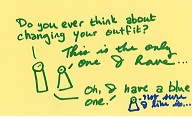 Do you ever think about
changing your outfit?
This is the only
one I have...
Oh, I have a blue
one!
not sure
I like so...